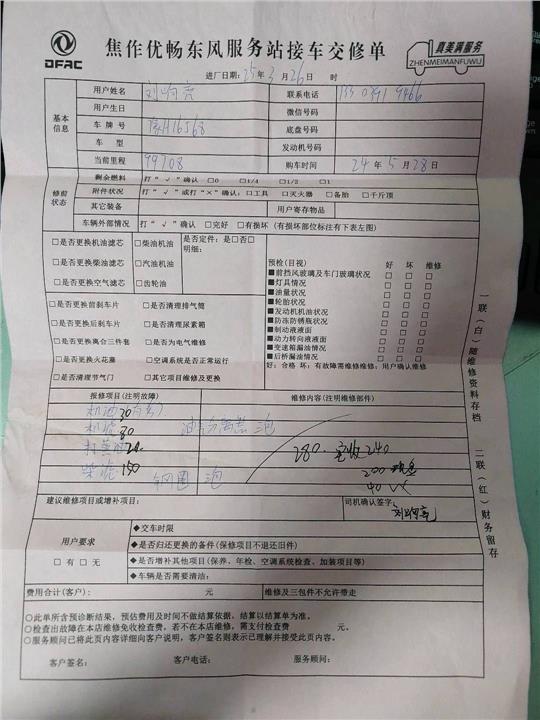 DFAC
焦作优畅东风服务站接车交修单
真美满服务
ZHENMEIMANFUWU
进厂日期：25年3月26日 时
基本信息
用户姓名 刘响亮 联系电话
用户生日 微信号码
车牌号 豫H16J68 底盘号码
车 型 发动机号码
当前里程 99708 购车时间 24年5月28日
修前状态
剩余燃料 打“√”确认 □0 □1/4 □1/2 □1
附件状况 打“√”或打“×”确认：□工具 □灭火器 □备胎 □千斤顶
其它装备 用户寄存物品
车辆外部情况 打“√”确认 □完好 □有损坏（有损坏部位标注有下表左图）
□是否更换机油滤芯 □柴油机油 是否定件：是□否□
明细：
□是否更换柴油滤芯 □汽油机油
□是否更换空气滤芯 □齿轮油
□是否更换前刹车片 □是否清理排气筒
□是否更换后刹车片 □是否清理尿素箱
□是否更换离合三件套 □是否为电气维修
□是否更换火花藻 □空调系统是否正常运行
□是否清理节气门 □其它项目维修及更换
预检（目视） 好 坏 维修
■前挡风玻璃及车门玻璃状况 □ □ □
■灯具情况 □ □ □
■油量状况 □ □ □
■轮胎状况 □ □ □
■发动机机油状况 □ □ □
■防冻防锈瓶状况 □ □ □
■制动液液面 □ □ □
■动力转向液液面 □ □ □
■变速箱漏油情况 □ □ □
■后桥漏油情况 □ □ □
好：合格 坏：有故障需维修维修：用户确认维修
报修项目（注明故障） 维修内容（注明维修部件）
机油30
机滤80
打黄油20
柴滤150
钢圈 泡
280 实收240
200 现金
40 VX
建议维修项目或增补项目： 司机确认签字：
刘响亮
用户要求
□有 □无
◆交车时限
◆是否归还更换的备件（保修项目不退还旧件）
◆是否增补其他项目（保养、年检、空调系统检查、加装项目等）
◆车辆是否需要清油：
费用合计（客户）： 元 维修及三包件不允许带走
○此单所含预诊断结果，预估费用及时间不做结算依据，结算以结算单为准。
○检查出故障在本店维修免收检查费，若不在本店维修，需支付检查费 元。
○服务顾问已将此页内容详细向客户说明，客户签名则表示已理解并接受此页内容。
客户签名： 客户电话： 服务顾问：
一联（白）随维修资料存档
二联（红）财务留存